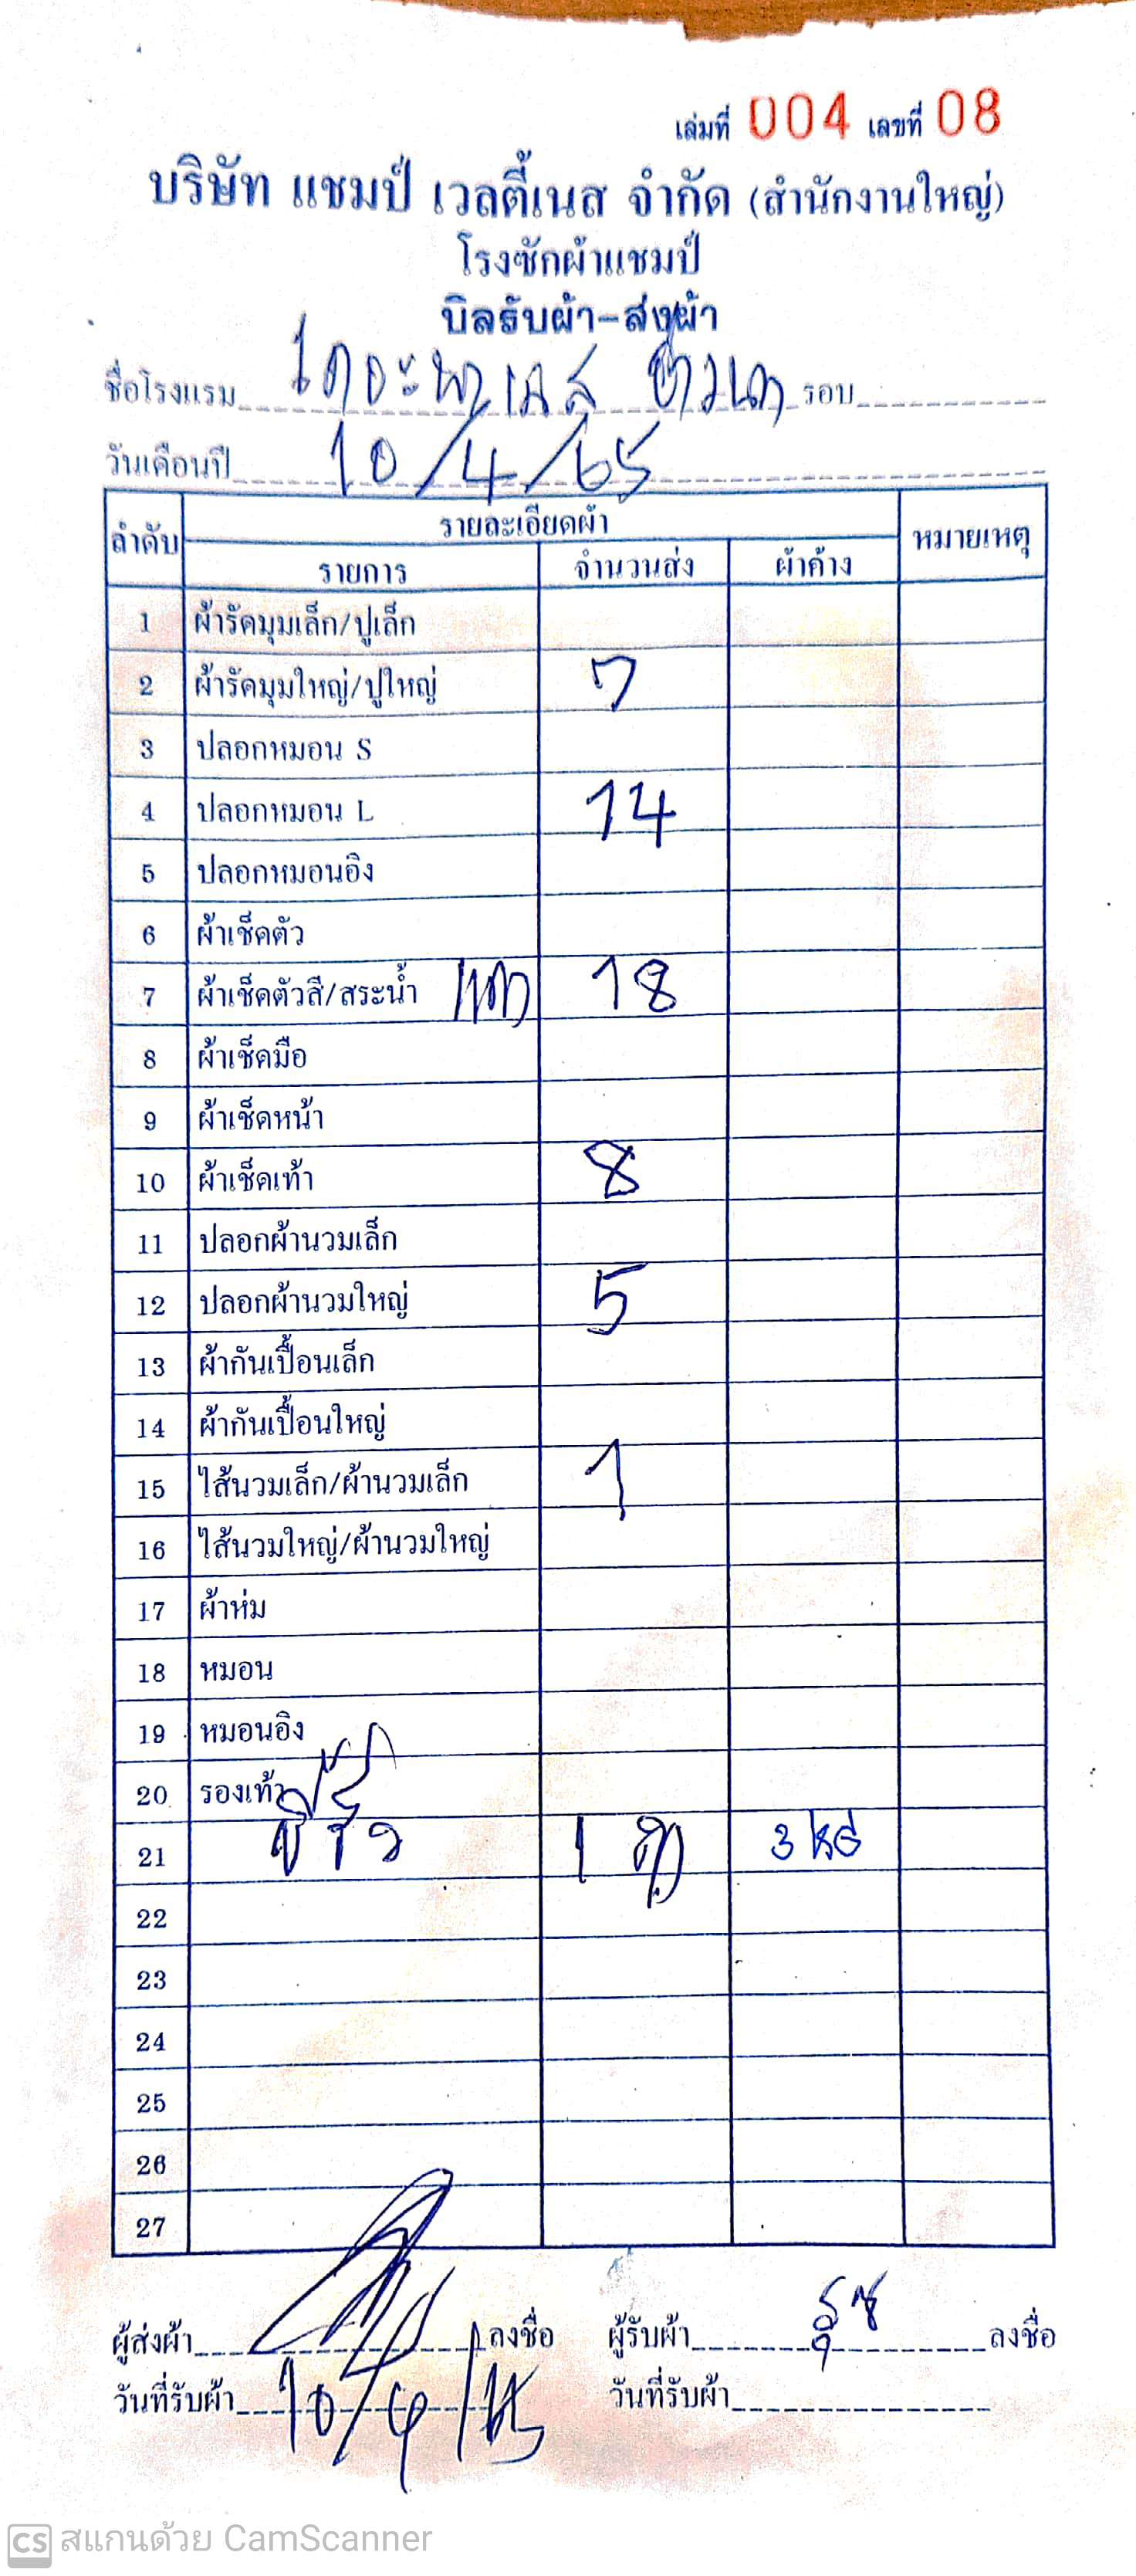 เล่มที่ 004 เลขที่ 08
บริษัท แชมป์ เวลตี้เนส จำกัด (สำนักงานใหญ่)
โรงซักผ้าแชมป์
บิลรับผ้า-ส่งผ้า
ชื่อโรงแรม รอบ
วันเดือนปี 10/4/65
ลำดับ รายละเอียดผ้า หมายเหตุ
รายการ จำนวนส่ง ผ้าค้าง
1 ผ้ารัดมุมเล็ก/ปูเล็ก
2 ผ้ารัดมุมใหญ่/ปูใหญ่ 7
3 ปลอกหมอน S
4 ปลอกหมอน L 14
5 ปลอกหมอนอิง
6 ผ้าเช็ดตัว
7 ผ้าเช็ดตัวสี/สระน้ำ 18
8 ผ้าเช็ดมือ
9 ผ้าเช็ดหน้า
10 ผ้าเช็ดเท้า 8
11 ปลอกผ้านวมเล็ก
12 ปลอกผ้านวมใหญ่ 5
13 ผ้ากันเปื้อนเล็ก
14 ผ้ากันเปื้อนใหญ่
15 ไส้นวมเล็ก/ผ้านวมเล็ก 1
16 ไส้นวมใหญ่/ผ้านวมใหญ่
17 ผ้าห่ม
18 หมอน
19 หมอนอิง
20 รองเท้า
21 1 3
22
23
24
25
26
27
ผู้ส่งผ้า ลงชื่อ ผู้รับผ้า ลงชื่อ
วันที่รับผ้า 10/4/65 วันที่รับผ้า
CS สแกนด้วย CamScanner